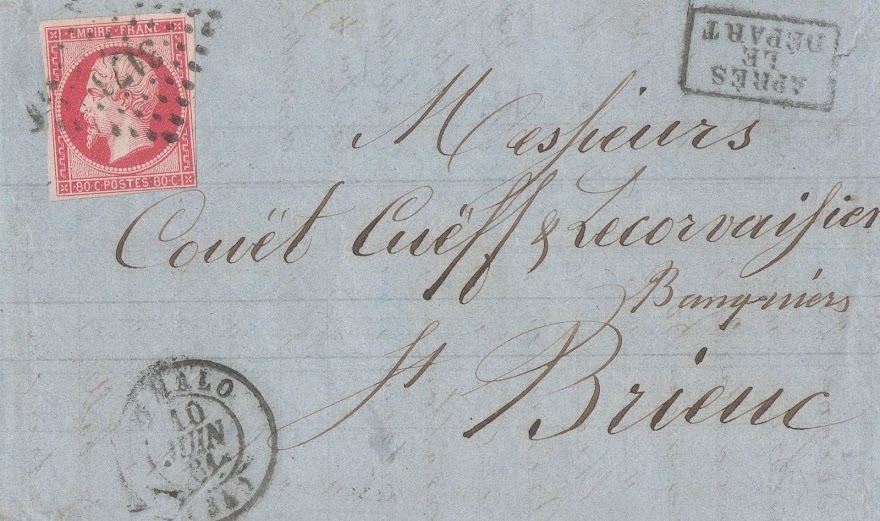 EMPIRE FRANC
80·C·POSTES·80·C
APRÈS
LE
DÉPART
Messieurs
Couët Cuëff & Lecorvaisier
Banquiers
St Brieuc
MALO
10
JUIN